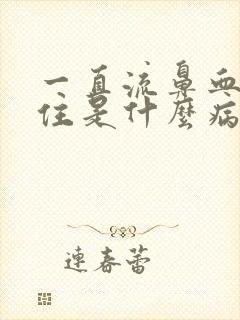 一直流鼻血
住是什麼病
連春蕾